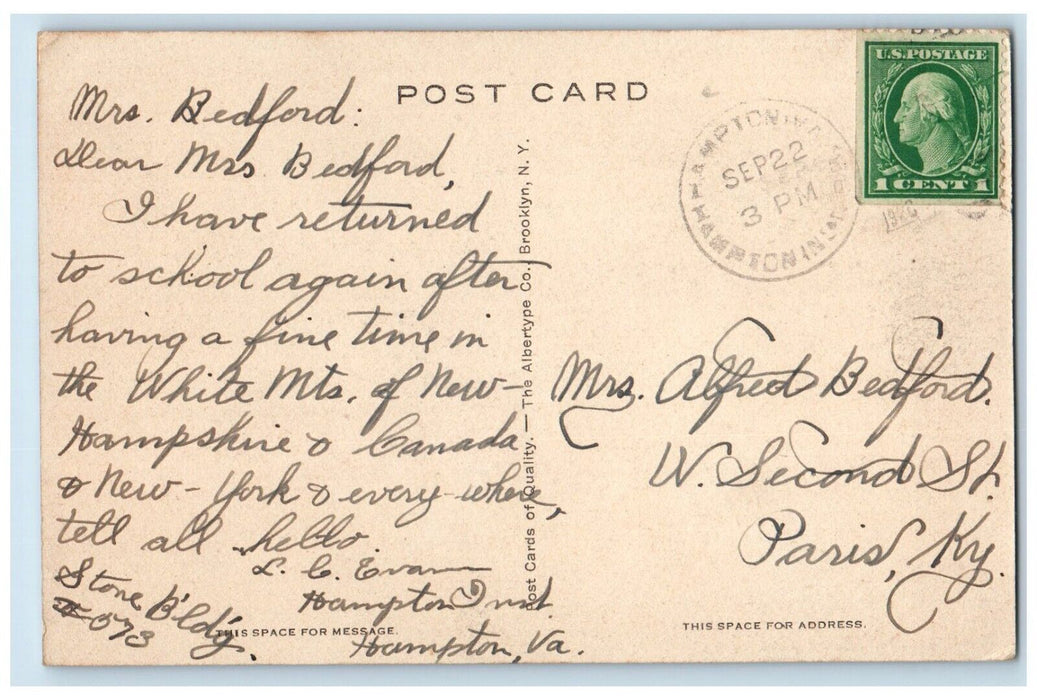 POST CARD
Mrs. Bedford:
Dear Mrs Bedford,
I have returned
to school again after
having a fine time in
the White Mts. of New-
Hampshire & Canada
& New-York & every-where,
tell all hello.
L. C. Evans
Hampton Inst.
Hampton, Va.
Stone B'ldg.
#573
THIS SPACE FOR MESSAGE.
Post Cards of Quality. — The Albertype Co., Brooklyn, N. Y.
U.S. POSTAGE
1 CENT 1
HAMPTON
SEP 22
3 PM
HAMPTON IN
Mrs. Alfred Bedford.
W. Second St.
Paris, Ky.
THIS SPACE FOR ADDRESS.